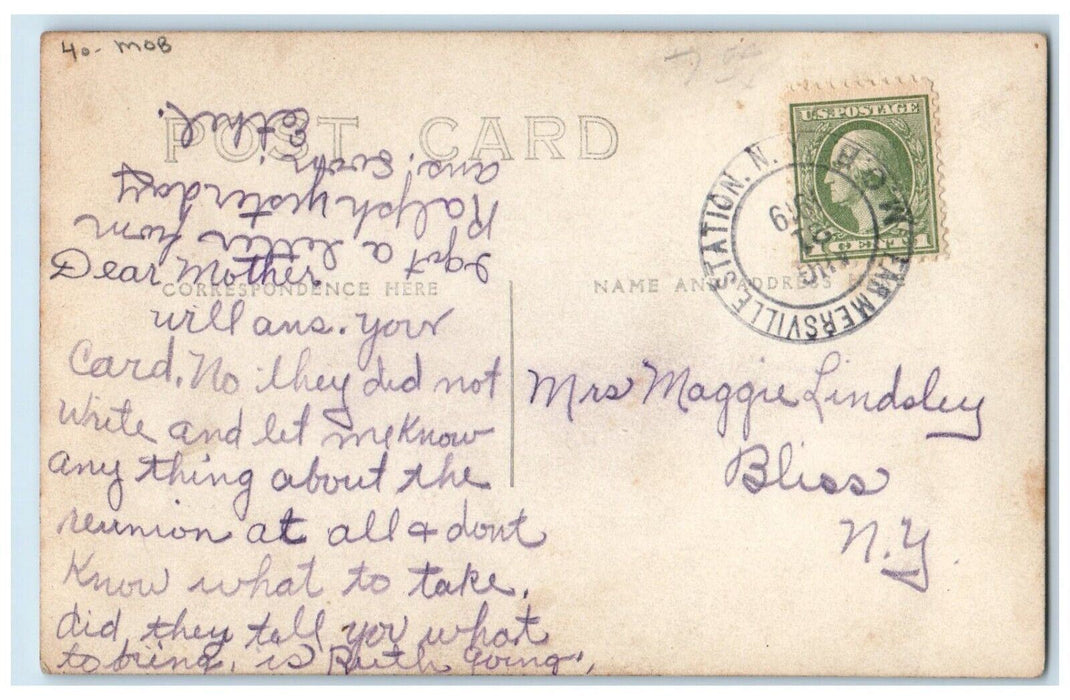 40- MOB
POST CARD
CORRESPONDENCE HERE
NAME AND ADDRESS
Dear Mother,
will ans. your
Card. No they did not
write and let me know
any thing about the
reunion at all & dont
know what to take.
did they tell you what
to bring, is Ruth going,
I got a letter from
Ralph yesterday
ans. soon
Ethel.
U.S. POSTAGE
1 CENT 1
FARMERSVILLE STATION. N.
AUG
Mrs Maggie Lindsley
Bliss
N.Y.